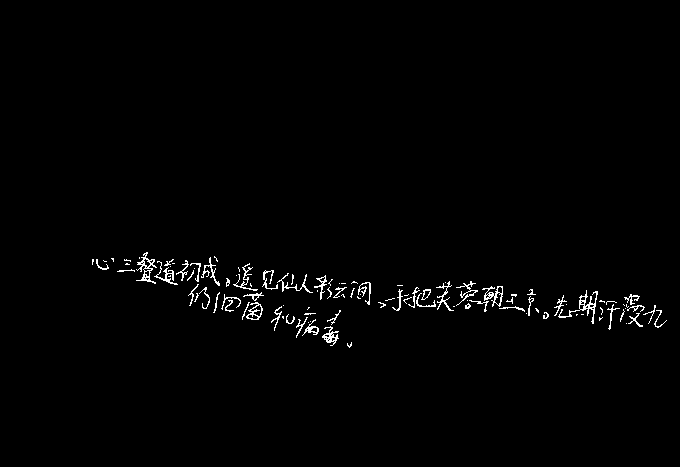 心三叠道初成。遥见仙人彩云间,手把芙蓉朝玉京。先期汗漫九
的细菌和病毒。